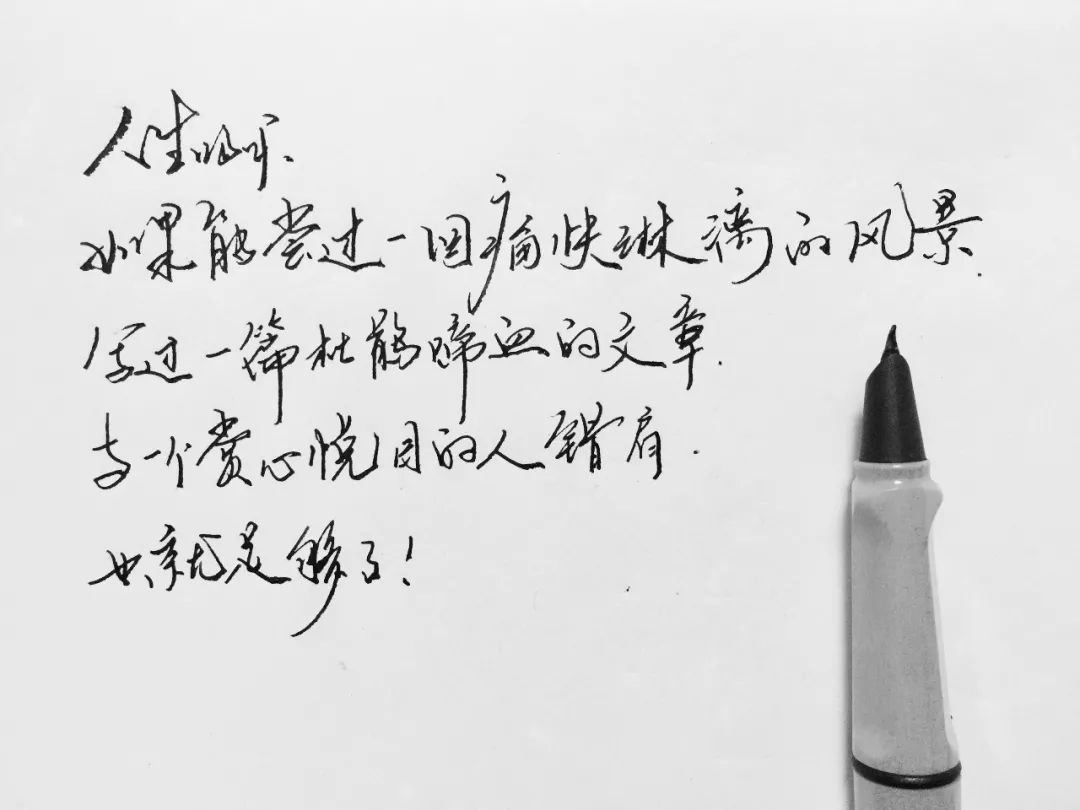 人生的吓、
如果能尝过一回痛快淋漓的风景.
写过一篇杜鹃啼血的文章.
与一个赏心悦目的人错肩.
也就足够了!